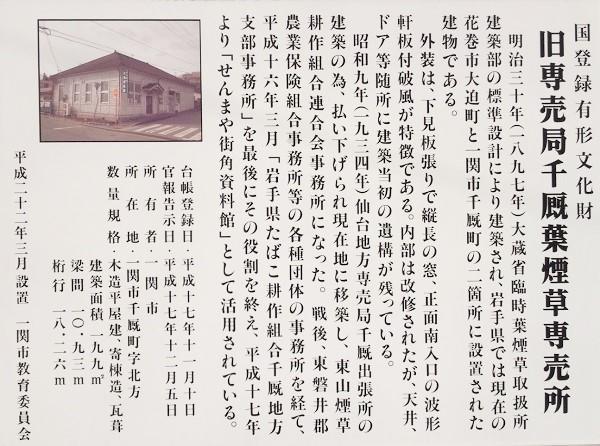 国登録有形文化財
旧専売局千厩葉煙草専売所
明治三十年(一八九七年)大蔵省臨時葉煙草取扱所
建築部の標準設計により建築され、岩手県では現在の
花巻市大迫町と一関市千厩町の二箇所に設置された
建物である。
外装は、下見板張りで縦長の窓、正面南入口の波形
軒板付破風が特徴である。内部は改修されたが、天井、
ドア等随所に建築当初の遺構が残っている。
昭和九年(一九三四年)仙台地方専売局千厩出張所の
建築の為、払い下げられ現在地に移築し、東山煙草
耕作組合連合会事務所になった。戦後、東磐井郡
農業保険組合事務所等の各種団体の事務所を経て、
平成十六年三月「岩手県たばこ耕作組合千厩地方
支部事務所」を最後にその役割を終え、平成十七年
より「せんまや街角資料館」として活用されている。
台帳登録日・平成十七年十一月十日
官報告示日・平成十七年十二月五日
所有者・一関市
所在地・一関市千厩町字北方
数量規格・木造平屋建、寄棟造、瓦葺
建築面積 一九九㎡
梁間 一〇・九三m
桁行 一八・二六m
平成二十二年三月設置 一関市教育委員会